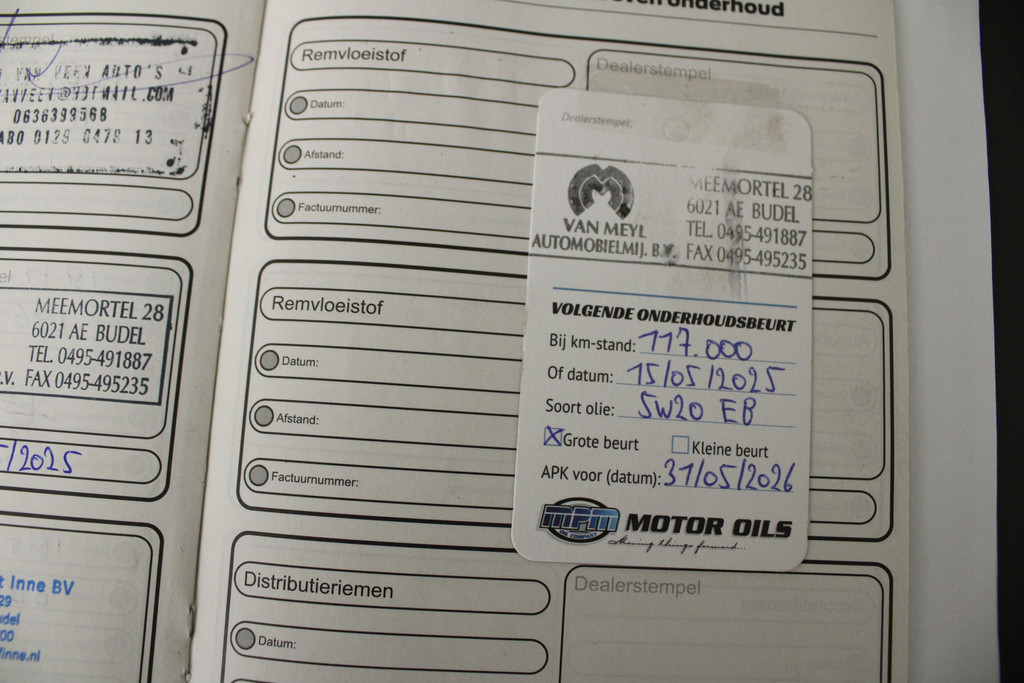 onderhoud
VAN VEEN AUTO'S
0636399568
Remvloeistof
Datum:
Afstand:
Factuurnummer:
Dealerstempel
MEEMORTEL 28
6021 AE BUDEL
TEL. 0495-491887
B.V. FAX 0495-495235
/2025
Remvloeistof
Datum:
Afstand:
Factuurnummer:
t Inne BV
29
udel
00
inne.nl
Distributieriemen
Datum:
Dealerstempel
Dealerstempel:
VAN MEYL
AUTOMOBIELMIJ. B.V.
MEEMORTEL 28
6021 AE BUDEL
TEL. 0495-491887
FAX 0495-495235
VOLGENDE ONDERHOUDSBEURT
Bij km-stand: 117.000
Of datum: 15/05/2025
Soort olie: 5W20 EB
Grote beurt Kleine beurt
APK voor (datum): 31/05/2026
MPM MOTOR OILS
OIL COMPANY
Moving things forward...